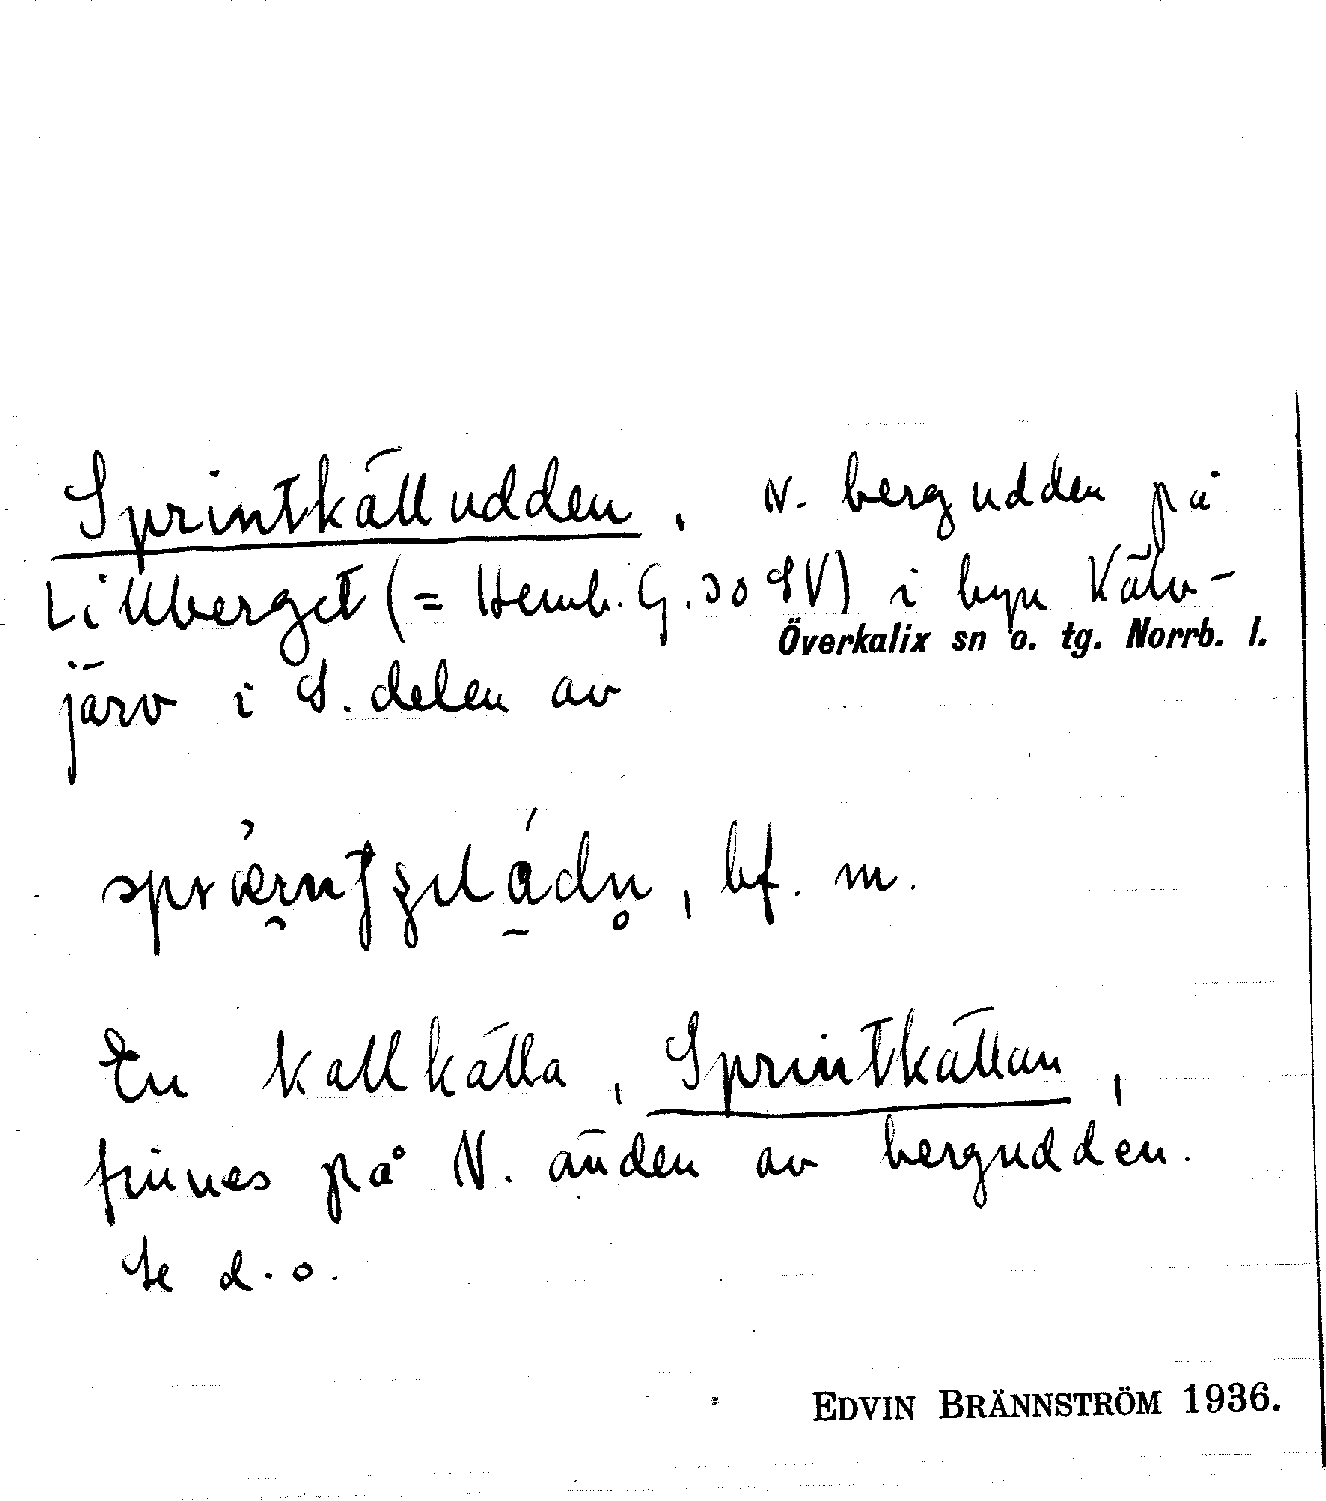 Sprintkälludden, N. bergudden på
Lillberget (= Hemb. G. 30 SV) i byn Kälv-
Överkalix sn o. tg. Norrb. l.
järv i S. delen av
bf. m.
En kallkälla, Sprintkällan,
finnes på N. änden av bergudden.
Se d. o.
EDVIN BRÄNNSTRÖM 1936.